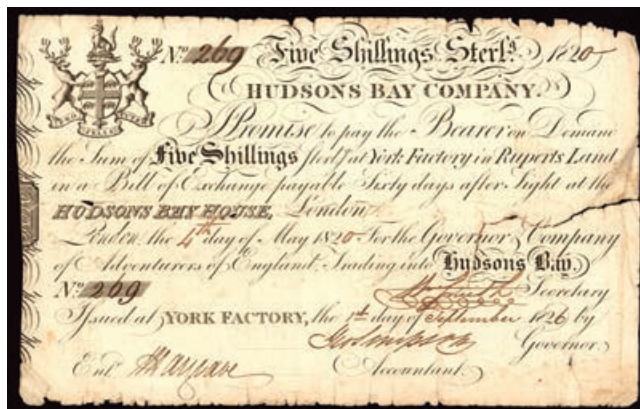 No. 269 Five Shillings Sterlg. 1820
HUDSONS BAY COMPANY.
PRO PELLE CUTEM
I Promise to pay the Bearer on Demand
the Sum of Five Shillings Sterlg. at York Factory in Ruperts Land
in a Bill of Exchange payable Sixty days after Sight at the
HUDSONS BAY HOUSE, London
London the 4th day of May 1820 For the Governor & Company
of Adventurers of England, Trading into Hudsons Bay.
No. 269
Secretary
Issued at YORK FACTORY, the 1st day of September 1826 by
Geo Simpson Governor.
Entd. Hargrave Accountant.